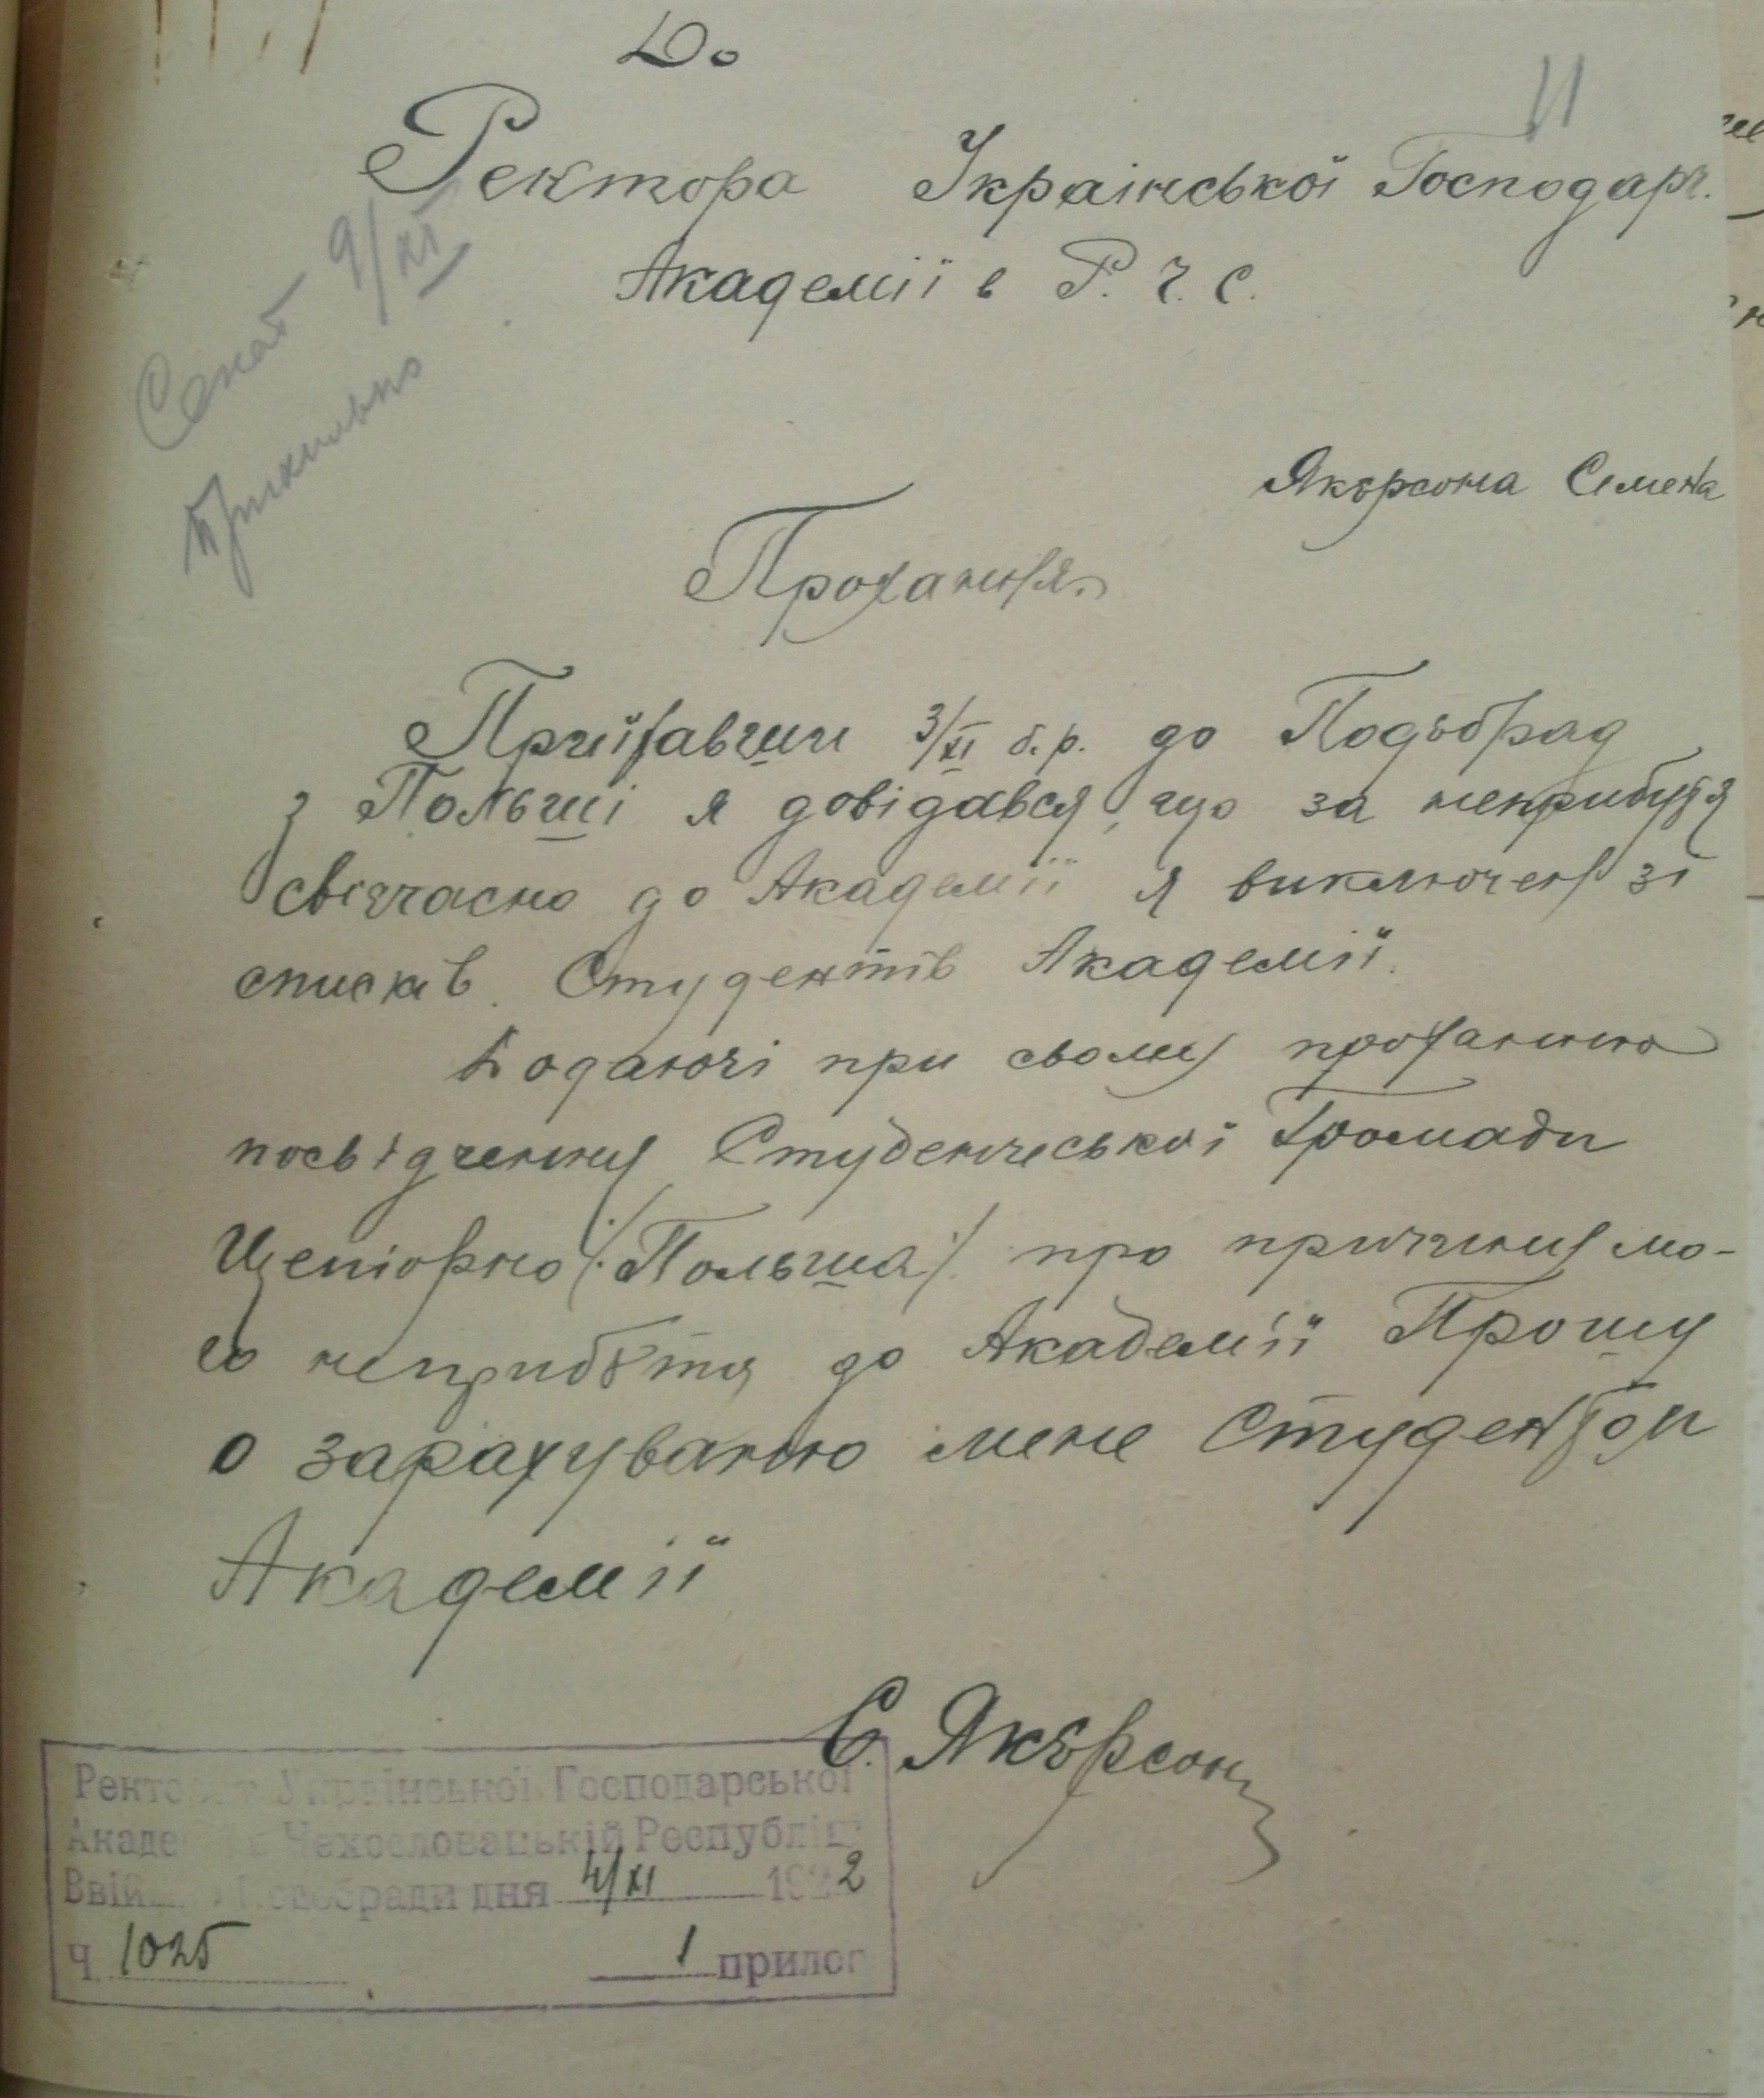 До
11
Ректора Української Господарч.
Академії в Р. Ч. С.
Сенат 9/XI
Прихильно
Якерсона Семена
Прохання.
Приїхавши 3/XI б.р. до Подєбрад
з Польші я довідався, що за неприбуття
свієчасно до Академії я виключен зі
списків Студентів Академії.
Додаючі при свому проханню
посьвідчення Студенчеської Громади
Щепіорно /:Польша:/ про причину мо-
го неприбуття до Академії Прошу
о зарахуванню мене Студентом
Академії
С. Якерсон
Ректорат Української Господарської
Академії в Чехословацькій Республіці
Ввійшло Подєбради дня 4/XI 1922
Ч. 1025 1 прилог